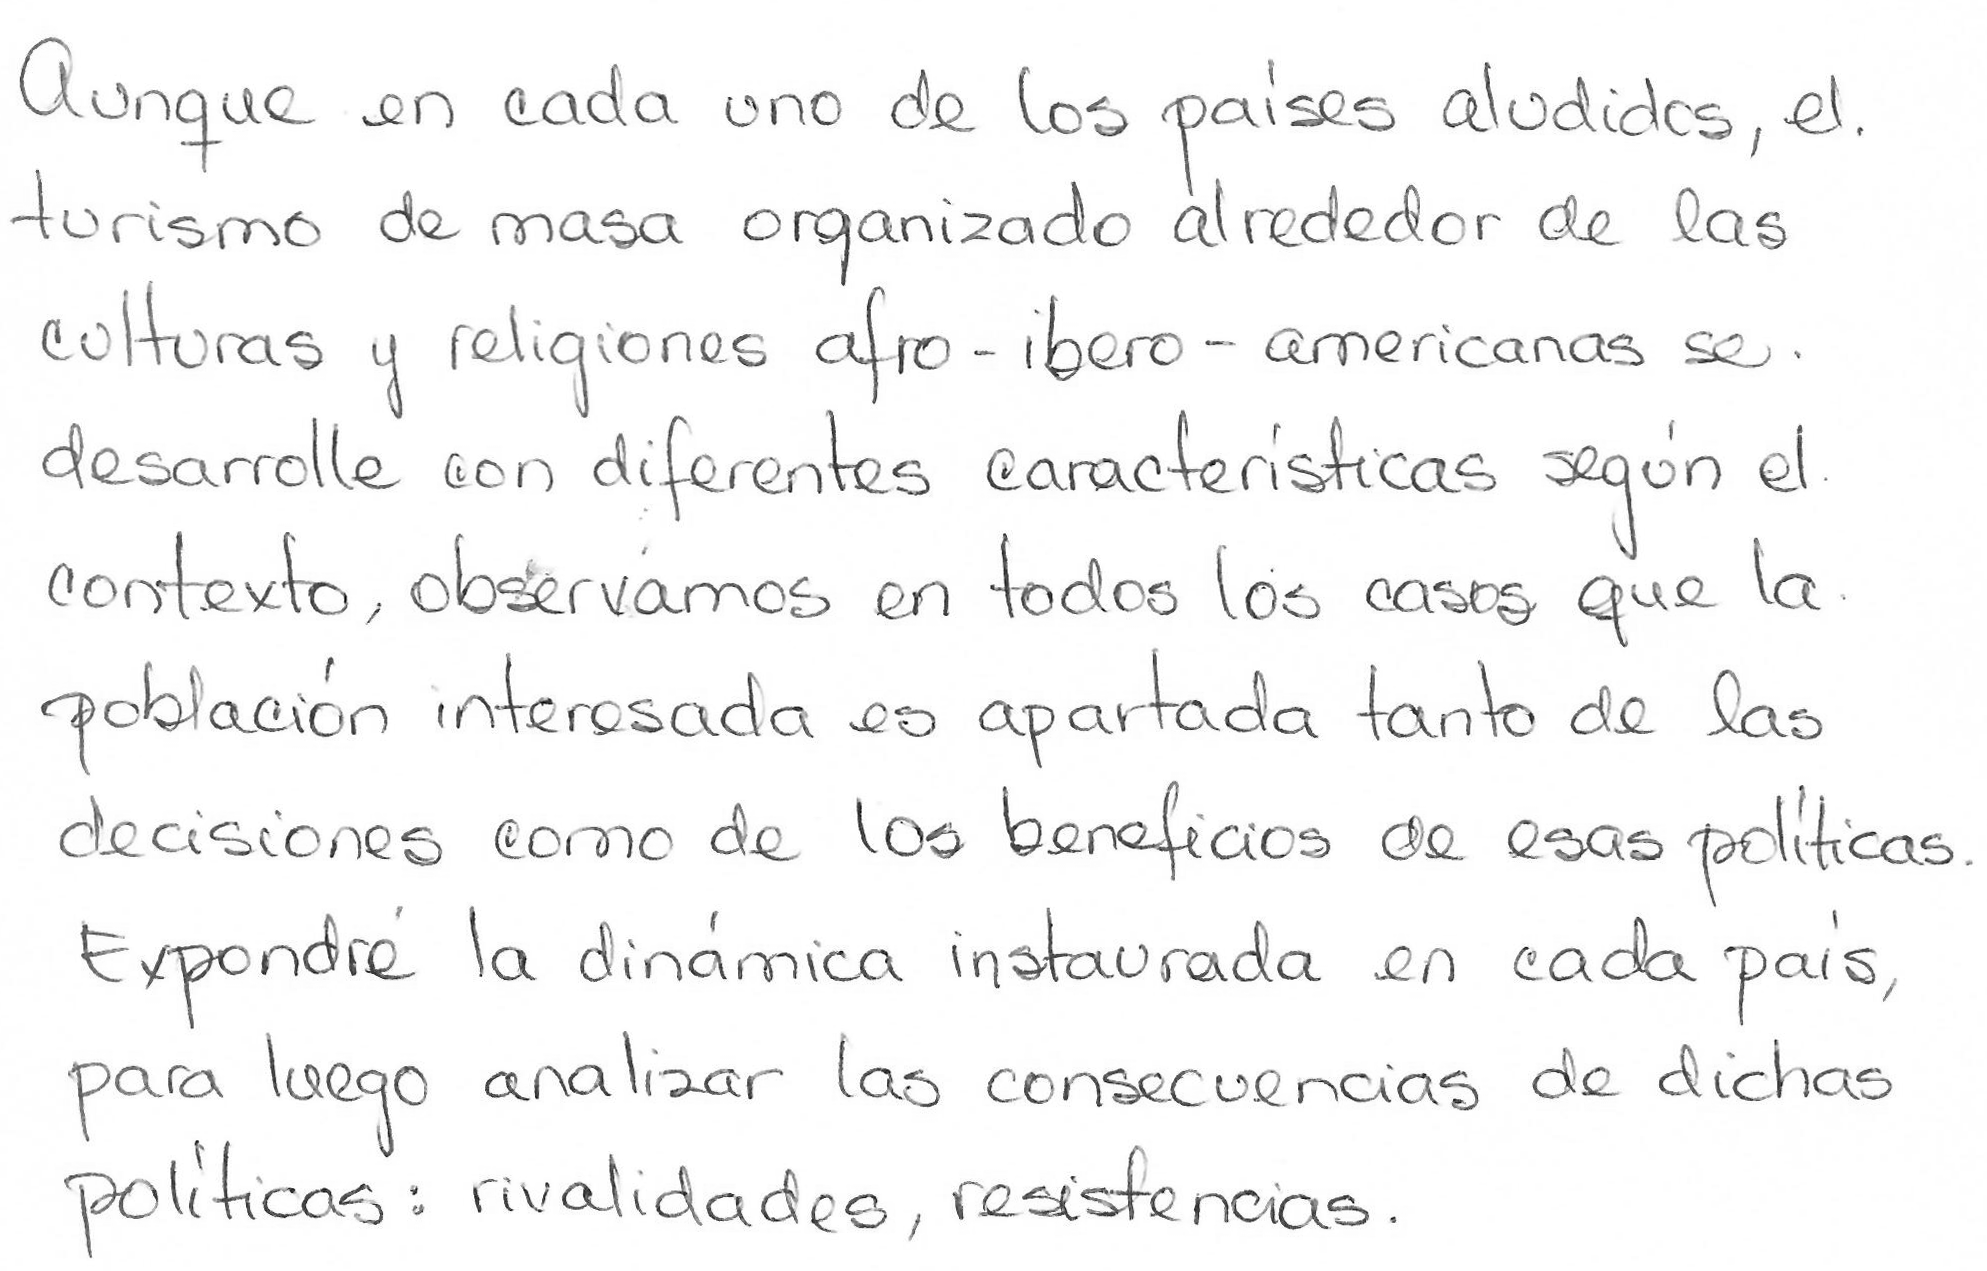 Aunque en cada uno de los países aludidos, el
turismo de masa organizado alrededor de las
culturas y religiones afro-ibero-americanas se
desarrolle con diferentes características según el
contexto, observamos en todos los casos que la
población interesada es apartada tanto de las
decisiones como de los beneficios de esas políticas.
Expondré la dinámica instaurada en cada país,
para luego analizar las consecuencias de dichas
políticas: rivalidades, resistencias.